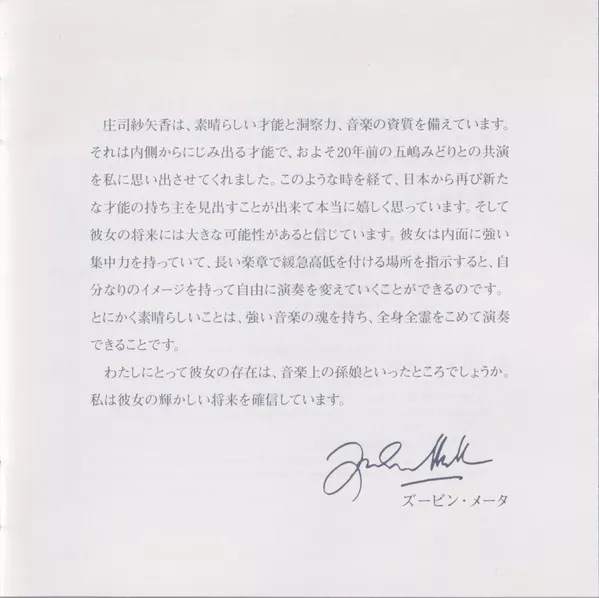 庄司紗矢香は、素晴らしい才能と洞察力、音楽の資質を備えています。
それは内側からにじみ出る才能で、およそ20年前の五嶋みどりとの共演
を私に思い出させてくれました。このような時を経て、日本から再び新た
な才能の持ち主を見出すことが出来て本当に嬉しく思っています。そして
彼女の将来には大きな可能性があると信じています。彼女は内面に強い
集中力を持っていて、長い楽章で緩急高低を付ける場所を指示すると、自
分なりのイメージを持って自由に演奏を変えていくことができるのです。
とにかく素晴らしいことは、強い音楽の魂を持ち、全身全霊をこめて演奏
できることです。
わたしにとって彼女の存在は、音楽上の孫娘といったところでしょうか。
私は彼女の輝かしい将来を確信しています。
ズービン・メータ